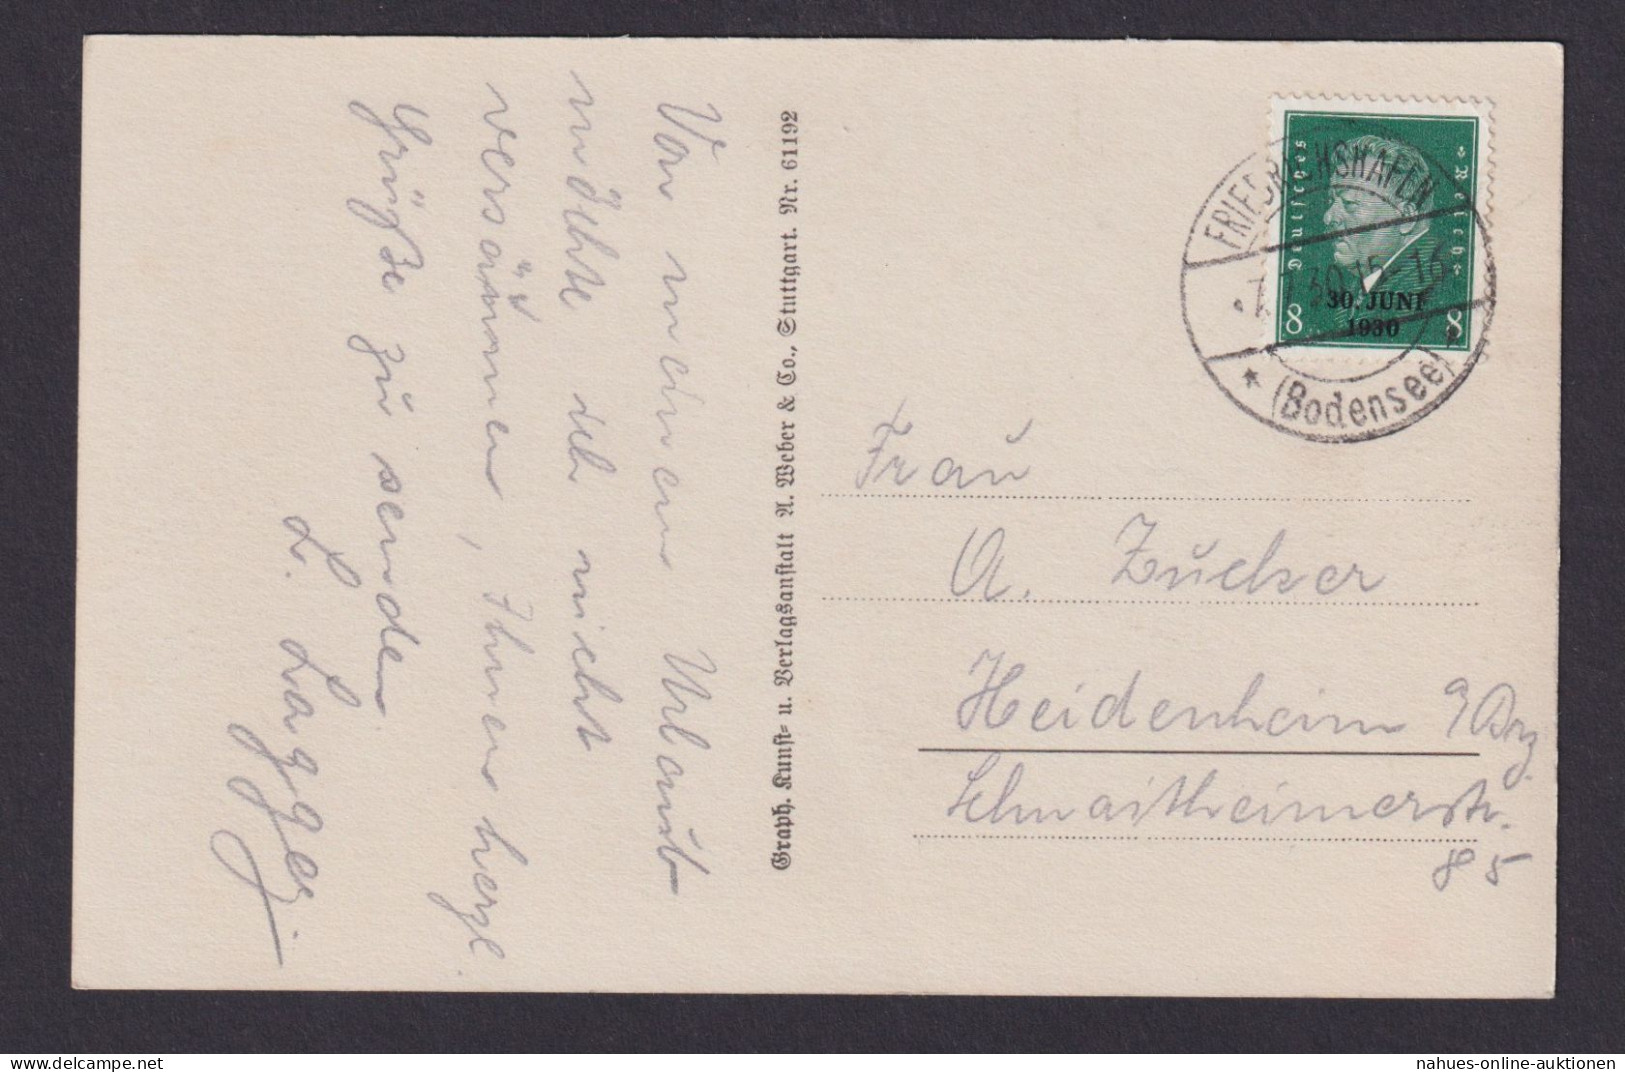 Von meinem Urlaub
möchte ich nicht
versäumen, Ihnen herzl.
Grüße zu senden
L. Lagger
Graph. Kunst- u. Verlagsanstalt A. Weber & Co., Stuttgart. Nr. 61192
Deutsches Reich
8 8
30. JUNI
1930
FRIEDRICHSHAFEN
7.7.30.15-16
(Bodensee)
Frau
A. Zucker
Heidenheim a/Brz.
Schnaitheimerstr.
85
nahues-online-auktionen